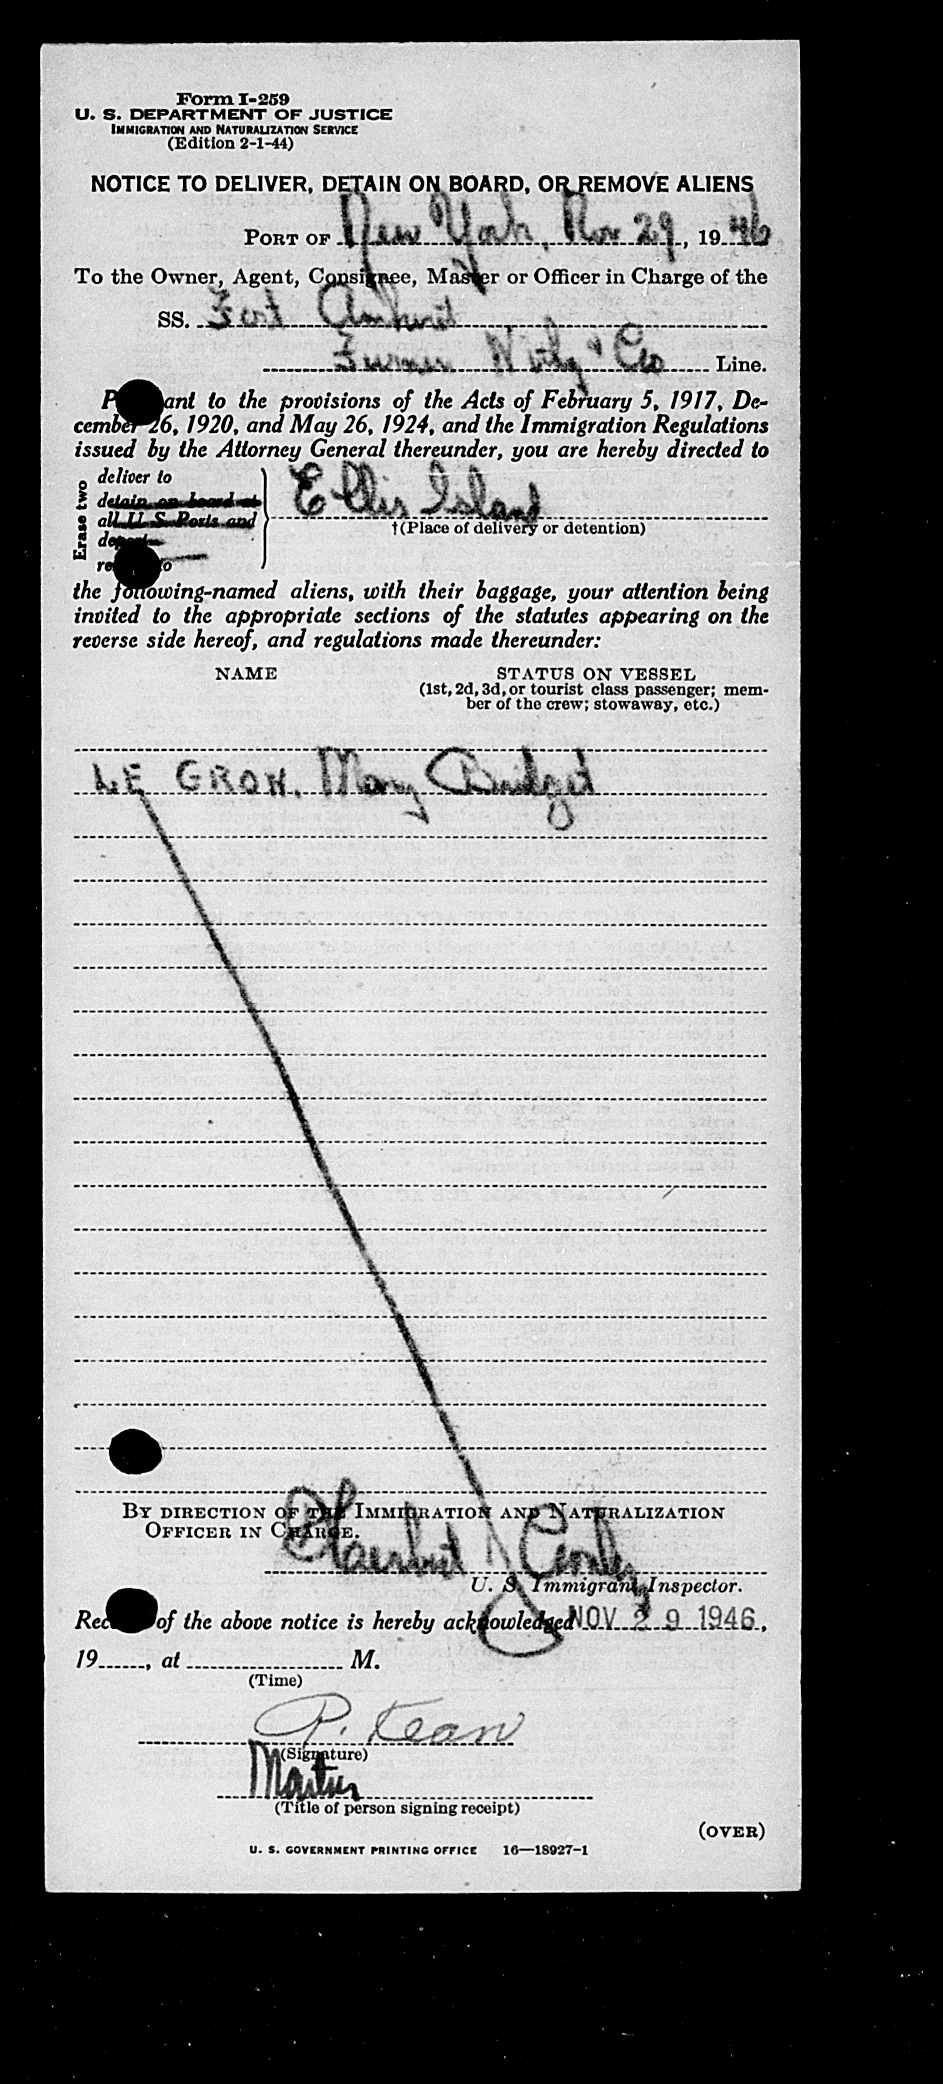 Form I-259
U. S. DEPARTMENT OF JUSTICE
IMMIGRATION AND NATURALIZATION SERVICE
(Edition 2-1-44)
NOTICE TO DELIVER, DETAIN ON BOARD, OR REMOVE ALIENS
PORT OF New York, Nov 29, 1946
To the Owner, Agent, Consignee, Master or Officer in Charge of the
SS. Fort Amherst
Furness Withy & Co Line.
P ant to the provisions of the Acts of February 5, 1917, De-
cember 26, 1920, and May 26, 1924, and the Immigration Regulations
issued by the Attorney General thereunder, you are hereby directed to
Erase two
deliver to
detain on board at
all U S Ports and
deport
re to
Ellis Island
†(Place of delivery or detention)
the following-named aliens, with their baggage, your attention being
invited to the appropriate sections of the statutes appearing on the
reverse side hereof, and regulations made thereunder:
NAME STATUS ON VESSEL
(1st, 2d, 3d, or tourist class passenger; mem-
ber of the crew; stowaway, etc.)
LE GROW, Mary Bridget
BY DIRECTION OF THE IMMIGRATION AND NATURALIZATION
OFFICER IN CHARGE.
U. S. Immigrant Inspector.
Rec of the above notice is hereby acknowledged NOV 29 1946,
19, at M.
(Time)
P. Kean
(Signature)
Master
(Title of person signing receipt)
(OVER)
U. S. GOVERNMENT PRINTING OFFICE 16—18927-1